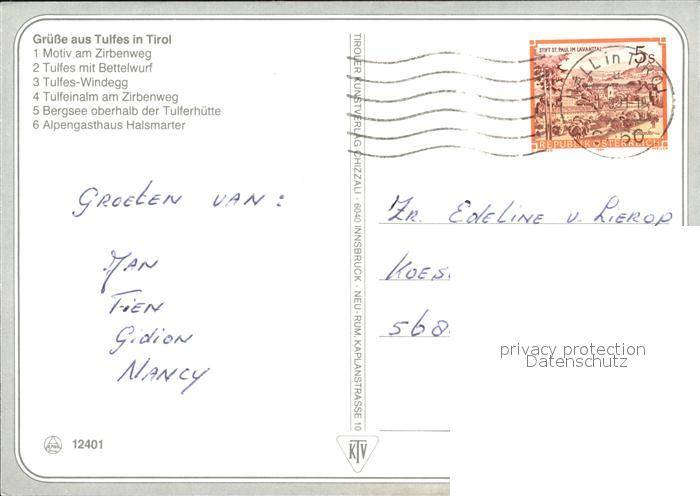 Grüße aus Tulfes in Tirol
1 Motiv am Zirbenweg
2 Tulfes mit Bettelwurf
3 Tulfes-Windegg
4 Tulfeinalm am Zirbenweg
5 Bergsee oberhalb der Tulferhütte
6 Alpengasthaus Halsmarter
Groeten van:
Jan
Tien
Gidion
Nancy
12401
TIROLER KUNSTVERLAG CHIZZALI · 6040 INNSBRUCK - NEU-RUM, KAPLANSTRASSE 10
KTV
STIFT ST. PAUL IM LAVANTTAL
5 S
REPUBLIK ÖSTERREICH
HALL in TIROL
Zr. Edeline v. Lierop
Koes
568
privacy protection
Datenschutz